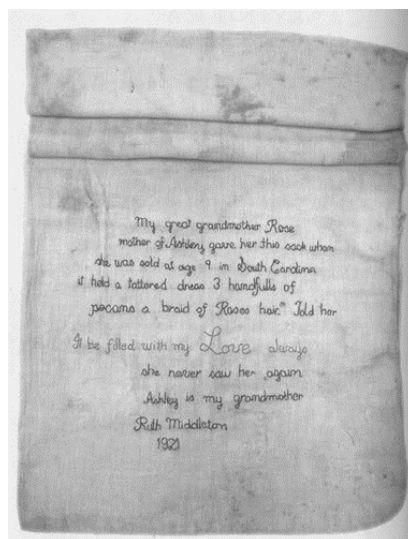 My great grandmother Rose
mother of Ashley gave her this sack when
she was sold at age 9 in South Carolina
it held a tattered dress 3 handfulls of
pecans a braid of Roses hair." Told her
It be filled with my Love always
she never saw her again
Ashley is my grandmother
Ruth Middleton
1921